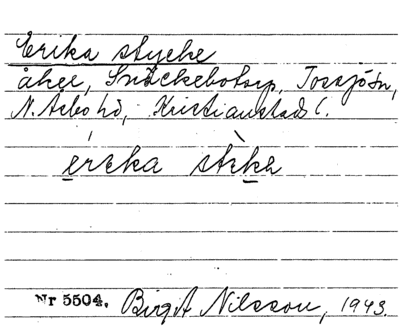 Erika stycke
åker, Snäckebotorp, Tossjö sn,
N. Åsbo hd, Kristianstads l.
ereka steke
Nr 5504. Birgit Nilsson, 1943.